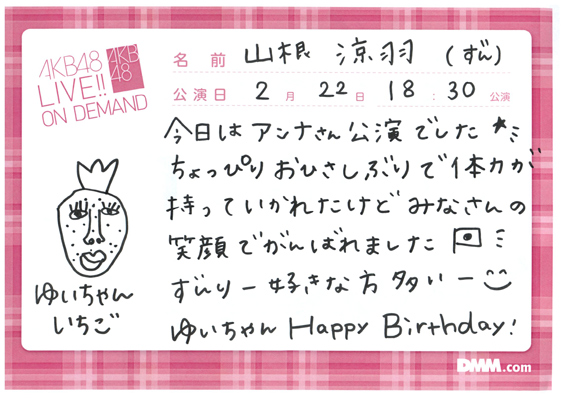 AKB48
LIVE!!
ON DEMAND
AKB
48
名前 山根 涼羽 (ずん)
公演日 2月 22日 18:30 公演
今日はアンナさん公演でした★ミ
ちょっぴりおひさしぶりで体力が
持っていかれたけどみなさんの
笑顔でがんばれました
ずんりー好きな方多いー
ゆいちゃん Happy Birthday!
ゆいちゃん
いちご
DMM.com